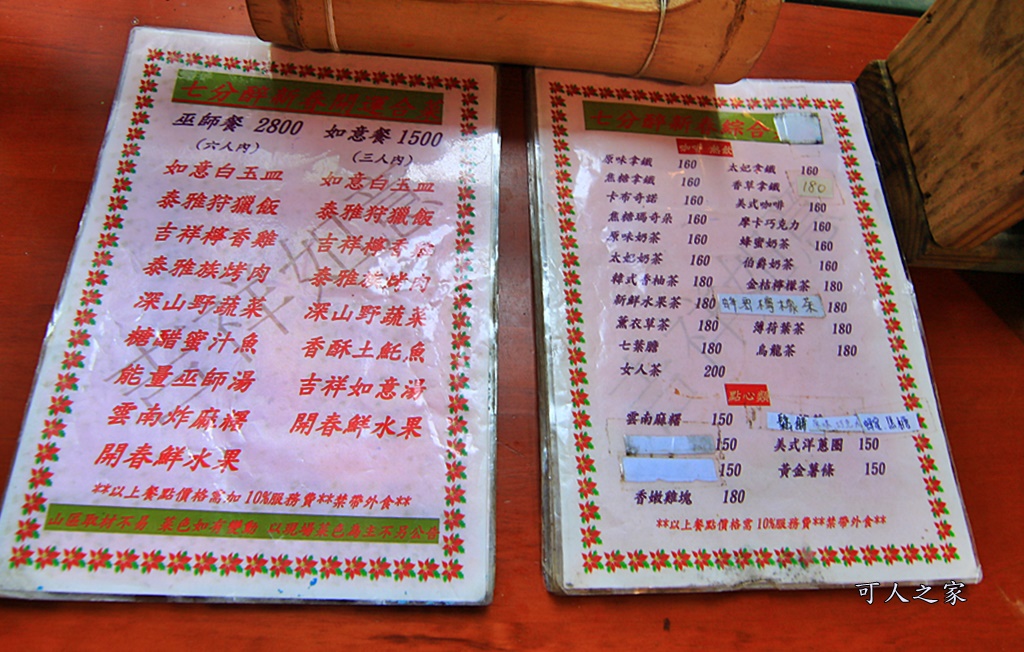 七分醉新春開運合菜
巫師餐 2800 如意餐 1500
(六人內) (三人內)
如意白玉皿 如意白玉皿
泰雅狩獵飯 泰雅狩獵飯
吉祥檸香雞 吉祥檸香
泰雅族烤肉 泰雅族烤肉
深山野蔬菜 深山野蔬菜
糖醋蜜汁魚 香酥土魠魚
能量巫師湯 吉祥如意湯
雲南炸麻糬 開春鮮水果
開春鮮水果
**以上餐點價格需加 10%服務費**禁帶外食**
山區取材不易 菜色如有變動 以現場菜色為主不另公告
七分醉新春綜合
咖啡
原味拿鐵 160 太妃拿鐵 160
焦糖拿鐵 160 香草拿鐵 180
卡布奇諾 160 美式咖啡 160
焦糖瑪奇朵 160 摩卡巧克力 160
原味奶茶 160 蜂蜜奶茶 160
太妃奶茶 160 伯爵奶茶 160
韓式香柚茶 180 金桔檸檬茶 180
新鮮水果茶 180 180
薰衣草茶 180 薄荷葉茶 180
七葉膽 180 烏龍茶 180
女人茶 200
點心類
雲南麻糬 150 鬆餅
150 美式洋蔥圈 150
150 黃金薯條 150
香嫩雞塊 180
**以上餐點價格需 10%服務費**禁帶外食**
可人之家